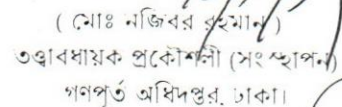 ( মোঃ নজিবর রহমান )
তত্ত্বাবধায়ক প্রকৌশলী (সংস্থাপন)
গণপূর্ত অধিদপ্তর, ঢাকা।